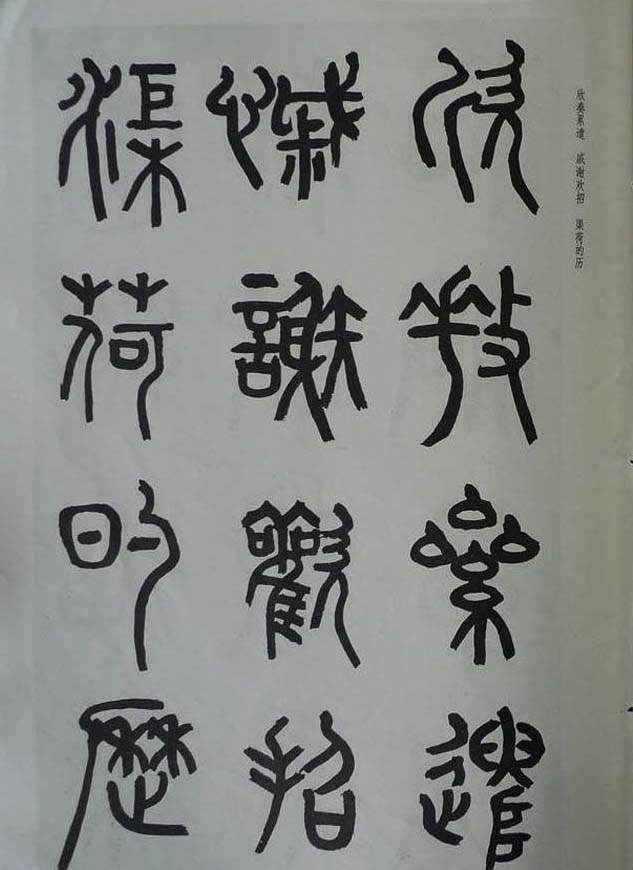 欣奏累遣 戚谢欢招 渠荷的历
欣奏累遣
慼謝歡招
渠荷的歷